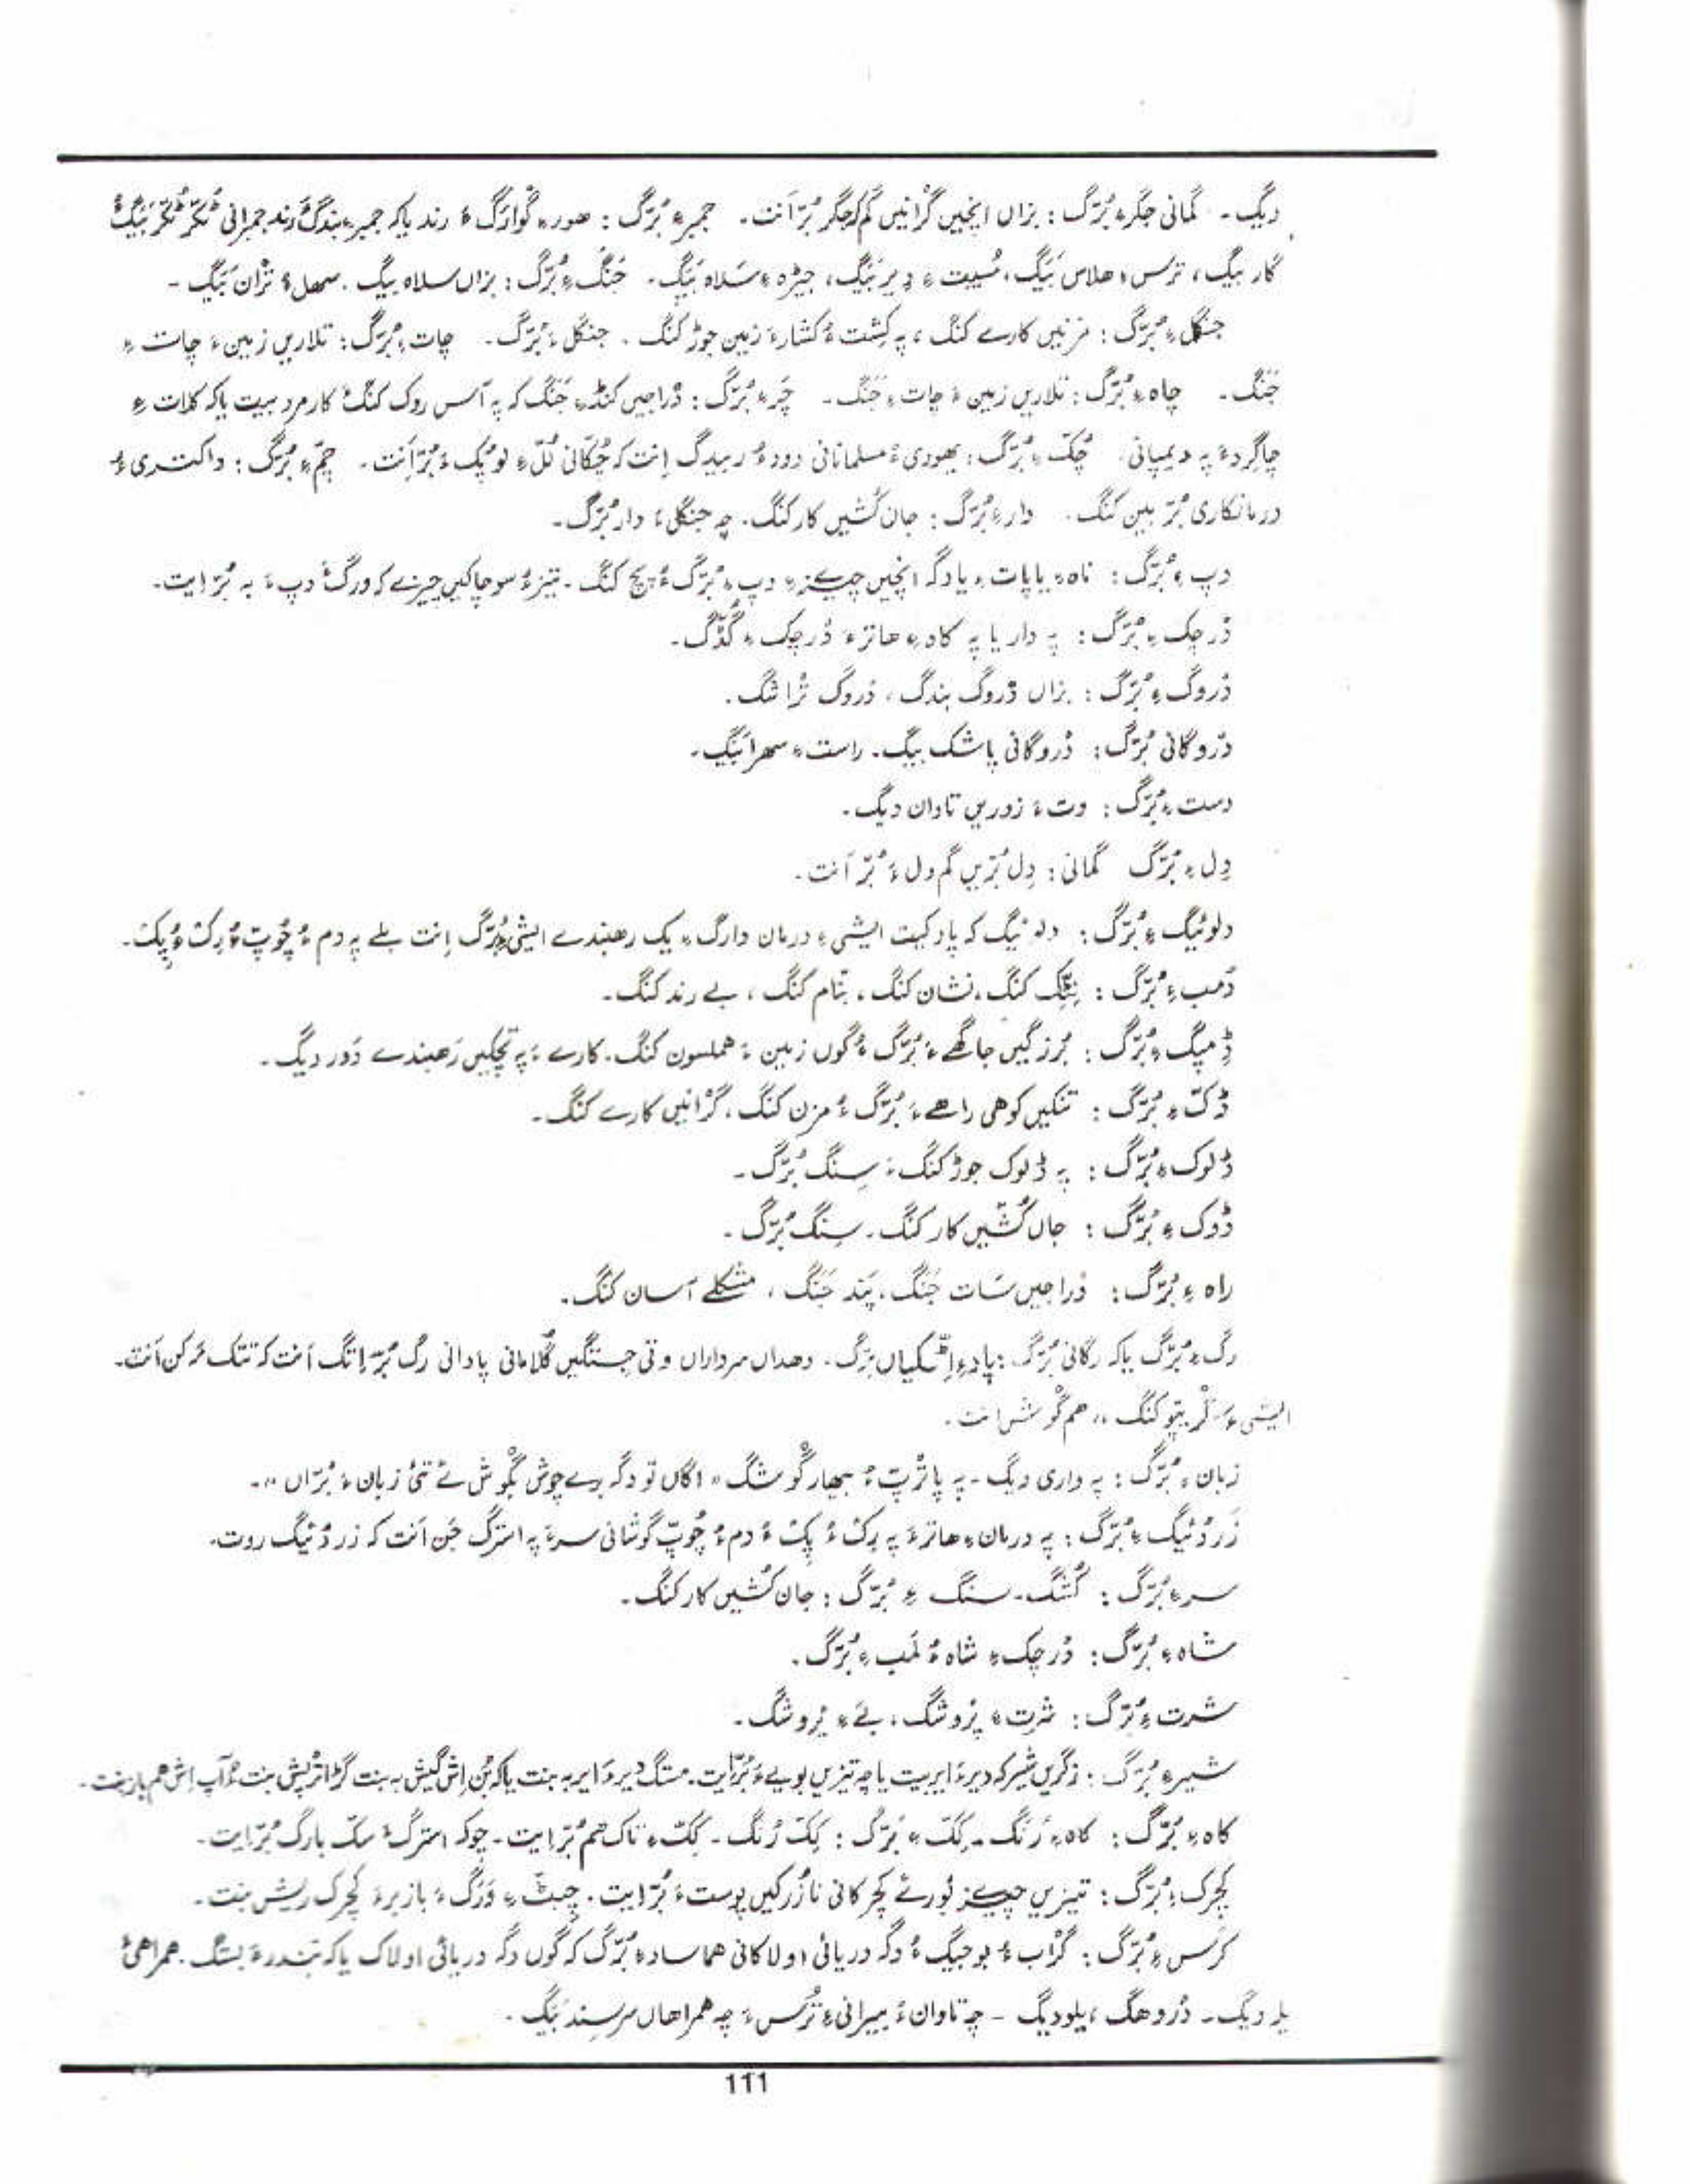 دیگ۔ گمانی جگرءِ بُرّگ: بزاں انچیں گرانیں گم کہ جگر بُرّ اَنت۔ جمبرءِ بُرّگ: ھورءِ گوارگءُ رند یا کہ جمبرءِ بندگءَ رند جمبرانی ٹُکّر ٹُکّر بَیگءُ
گار بیگ، ترس ءِ ھلاس بَیگ، مُسیبت ءِ دیر بَیگ، جیڑہ ءِ سَلاہ بَیگ۔ جَنگ ءِ بُرّگ: بزاں سلاہ بیگ۔ سھل ءُ تْران بَیگ۔
جنگل ءِ بُرّگ: مزنیں کارے کنگ، پہ کِشت ءُ کشارءَ زمین جوڑ کنگ۔ جنگل ءَ بُرّگ۔ چات ءِ بُرّگ: تلاریں زمین ءَ چات ءِ
جَنگ۔ چاہ ءِ بُرّگ: تلاریں زمین ءَ چات ءِ جَنگ۔ چَر ءِ بُرّگ: دْراجیں کنڈ ءِ جَنگ کہ پہ آس روک کنگءَ کارمرد بیت یا کہ کلات ءِ
چاگردءَ پہ دیمپانی۔ چُکّ ءِ بُرّگ: یھودی ءُ مسلمانانی دود ءُ ربیدگ اِنت کہ چُکّانی لُلّ ءِ لوپُک ءَ بُرّ اَنت۔ چمّ ءِ بُرّگ: داکتری ءُ
درمانکاری بُرّ بین کنگ۔ دار ءِ بُرّگ: جان کُشیں کار کنگ۔ چہ جنگل ءَ دار بُرّگ۔
دپ ءِ بُرّگ: ناہ ءِ یا پات ءِ یا دگہ انچیں چیزءِ دپ ءِ بُرّگ ءُ پچ کنگ۔ تیز ءُ سوچاکیں چیزے کہ ورگءَ دپ ءَ بہ بُرّ ایت۔
دْرچک ءِ بُرّگ: پہ دار یا پہ کاہ ءِ ھاترءَ دْرچک ءِ گُڈّگ۔
دْروگ ءِ بُرّگ: بزاں دْروگ بندگ، دْروگ تْراشگ۔
دْروگانی بُرّگ: دْروگانی پاشک بیگ۔ راست ءِ سھرا بَیگ۔
دست ءِ بُرّگ: وت ءَ زوریں تاوان دیگ۔
دِل ءِ بُرّگ گمانی: دِل بُرّیں گم دل ءَ بُرّ اَنت۔
دلوئیگ ءِ بُرّگ: دلوئیگ کہ پاد کیت ایشی ءِ درمان دارگ ءِ یک رھبندے ایشی ءِ بُرّگ اِنت بلے پہ دم ءُ چُوپّ ءُ رِکّ ءُ پِکّ۔
دُمب ءِ بُرّگ: کنگ، نشان کنگ، بتام کنگ، بے رند کنگ۔
ڈِمیگ ءِ بُرّگ: بُرزگیں جاگھے ءَ بُرّگ ءُ گوں زمین ءَ ھملسون کنگ۔ کارے ءَ پہ تچکیں رَھبندے دَور دیگ۔
ڈَکّ ءِ بُرّگ: تنکیں کوھی راھے ءَ بُرّگ ءُ مزن کنگ، گرانیں کارے کنگ۔
ڈلوک ءِ بُرّگ: پہ ڈلوک جوڑ کنگءَ سِنگ بُرّگ۔
ڈوک ءِ بُرّگ: جاں کُشّیں کار کنگ۔ سِنگ بُرّگ۔
راہ ءِ بُرّگ: دْراجیں سَات جَنگ، پَند جَنگ، مشکلے آسان کنگ۔
رگ ءِ بُرّگ یا کہ رگانی بُرّگ: پاد ءِ بُرّگ۔ وھداں سرداراں وتی جِستگیں گُلامانی پادانی رگ بُرّ اِتگ اَنت کہ تتک مہ کن اَنت۔
ایشی ءَ کنگ،، ھم گْوش اَنت۔
زبان ءِ بُرّگ: پہ داری دیگ۔ پہ پاتْرپّ ءُ بھار گْوشگ ،،اگاں تو دگہ برے چوش بگْوش ئے تئی زبان ءَ بُرّاں،،۔
زَردُئیگ ءِ بُرّگ: پہ درمان ءِ ھاترءَ پہ رِکّ ءُ پِکّ ءُ دم ءُ چُوپّ گوشانی سرءَ پہ استرگ جَن اَنت کہ زردُئیگ روت۔
سر ءِ بُرّگ: کُشگ۔ سنگ ءِ بُرّگ: جان کُشیں کار کنگ۔
شاہ ءِ بُرّگ: دْرچک ءِ شاہ ءُ لمب ءِ بُرّگ۔
شرت ءِ بُرّگ: شَرت ءِ پْروشگ، بے ءِ پْروشگ۔
شیر ءِ بُرّگ: زگریں شیر کہ دیر ءَ ایر بیت یا چہ تیزیں بو یے ءَ بُرّ ایت۔
کاہ ءِ بُرّگ: کاہ ءِ رُنگ۔ کَکّ ءِ بُرّگ: کَکّ رُنگ۔ کَکّ ءِ تاک ھم بُرّ ایت۔ چو کہ استرگ ءَ سکّ بارگ بُرّ ایت۔
کُچرک ءِ بُرّگ: تیزیں چیز ئورئے کُچرکانی نازُرکیں پوست ءَ بُرّ ایت۔ چِپٹ ءِ وَرگ ءَ باز برءَ کُچرک ریش بنت۔
کرس ءِ بُرّگ: گْراب ءُ بوجیگ ءُ دگہ دریائی اولاکانی ھما ساد ءِ بُرّگ کہ گوں دگہ دریائی اولاک یا کہ بندر ءَ بستگ۔ ھمراھی ءَ
یلہ دیگ۔ دْروھگ، یلو دیگ۔ چہ تاوان ءُ بیرانی ءِ تُرس ءَ چہ ھمراھاں سرسِند بَیگ۔
111